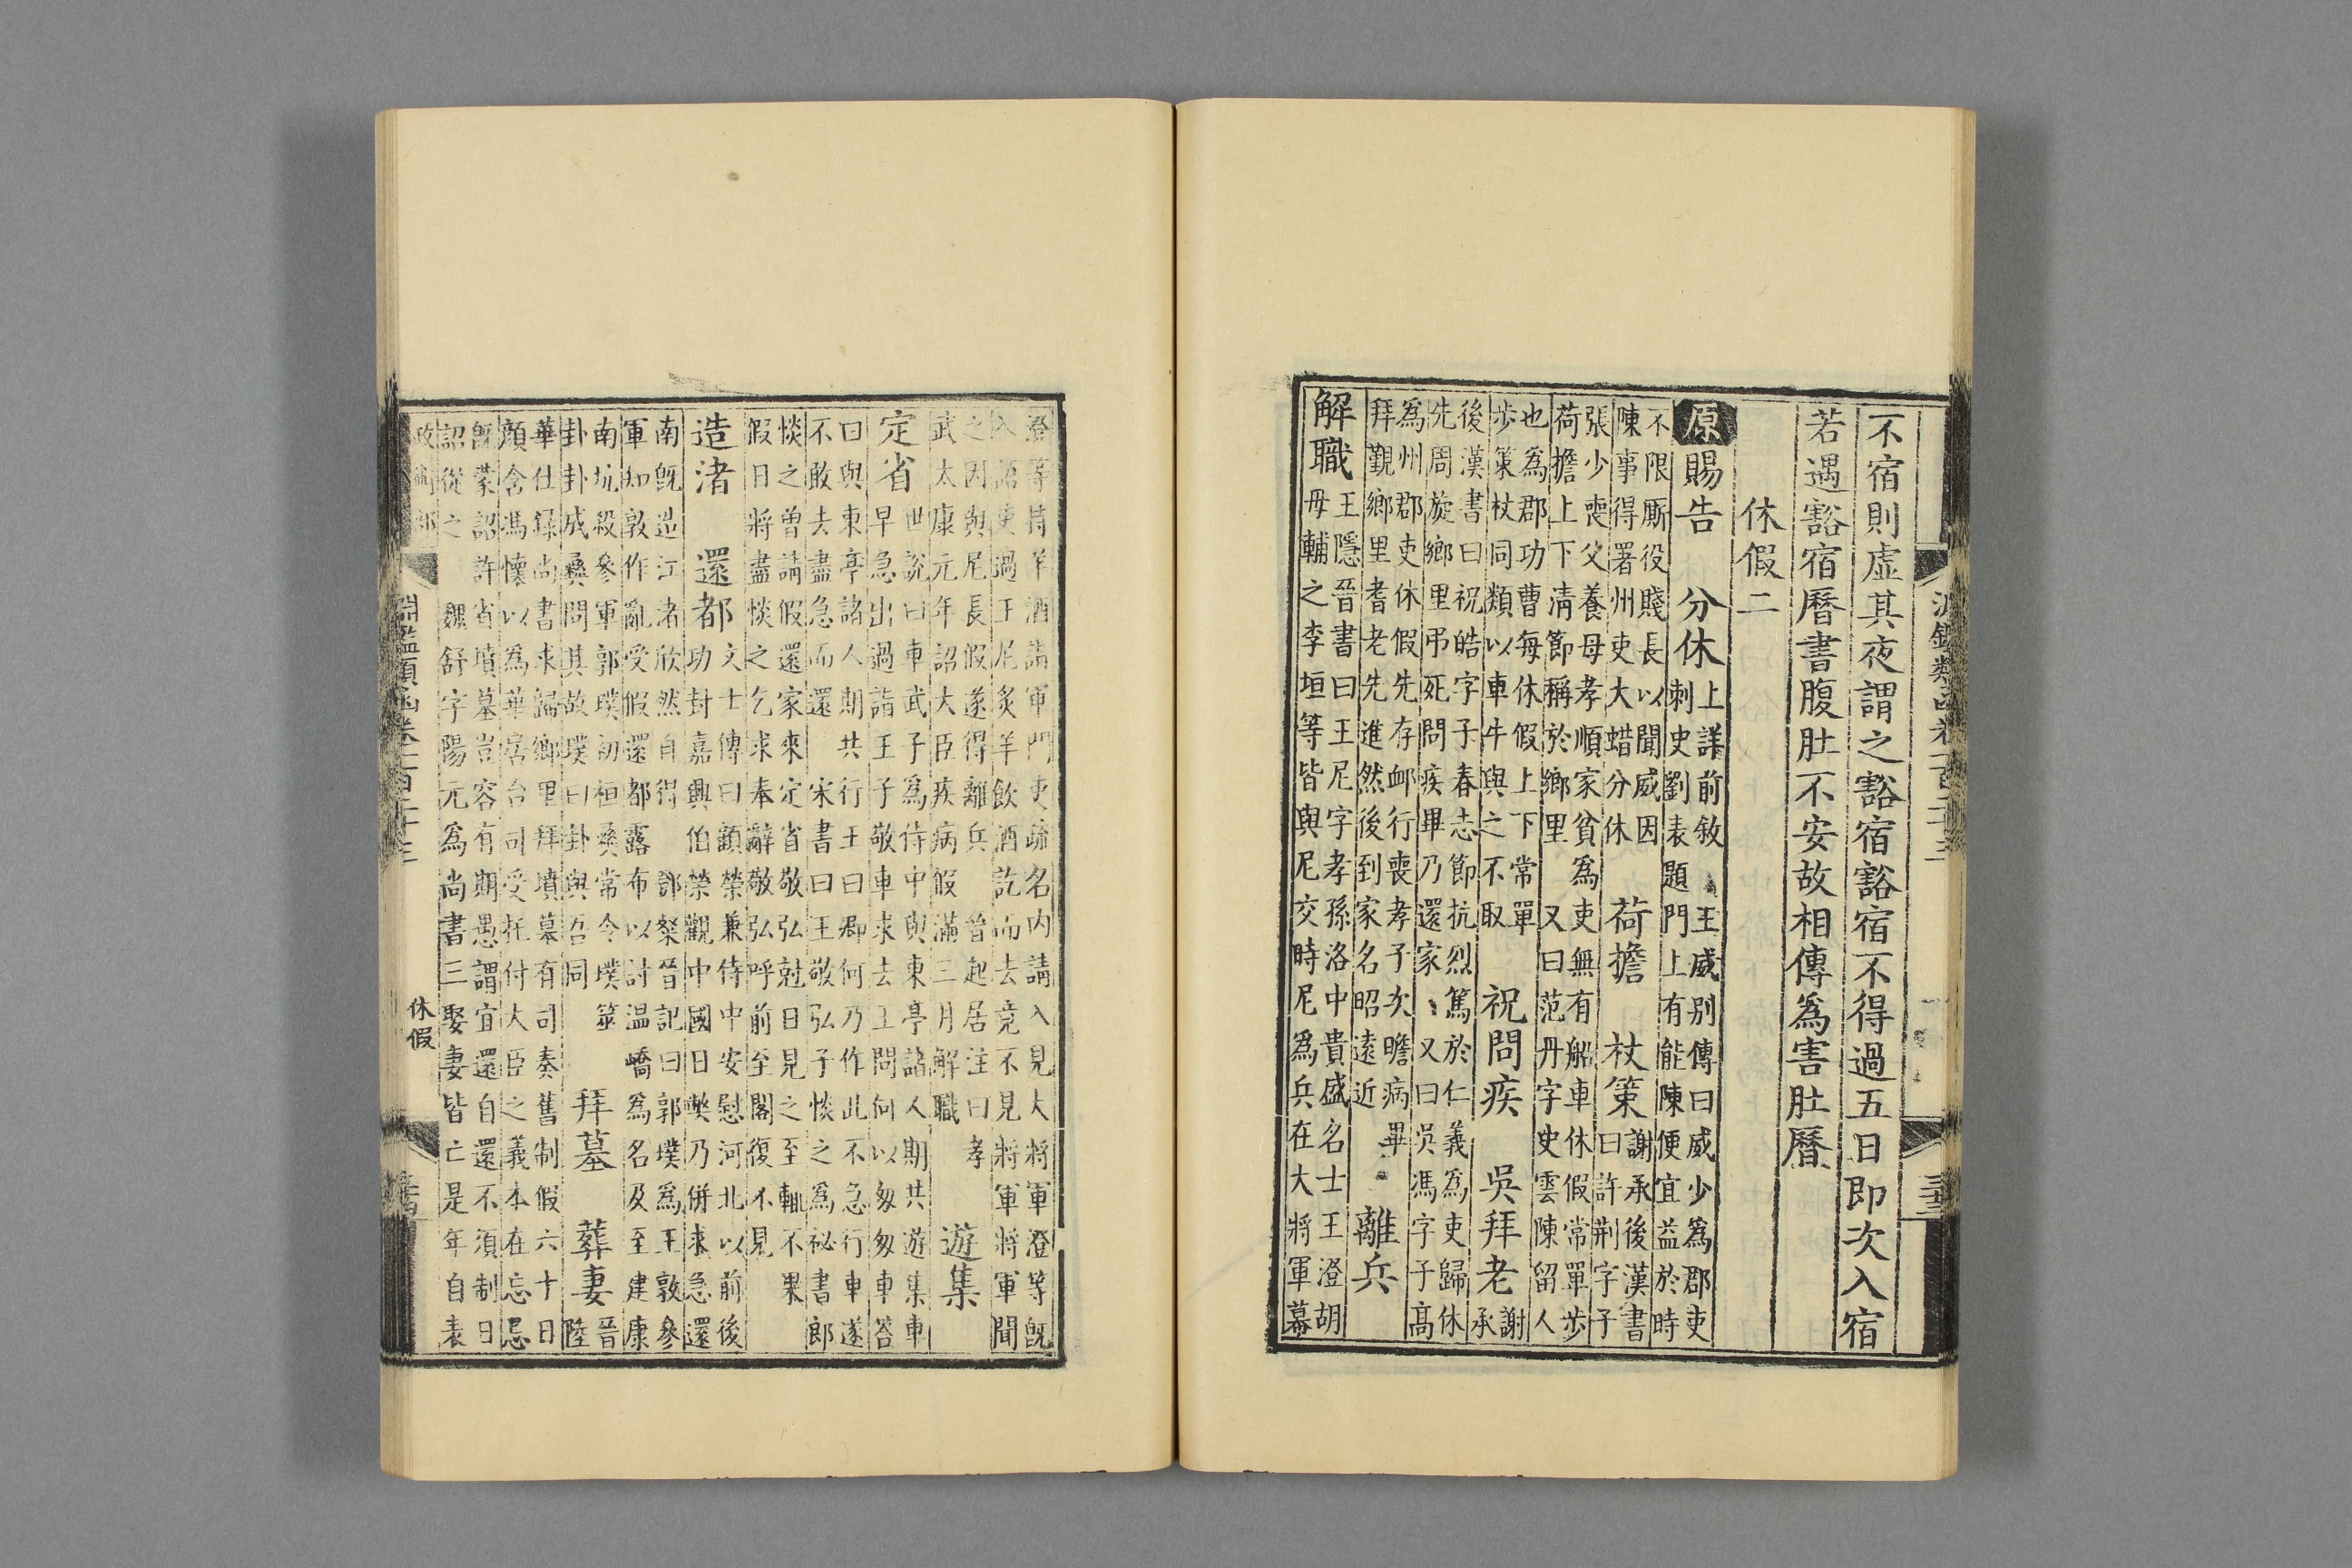 不宿則虛其夜謂之豁宿豁宿不得過五日即次入宿
若遇豁宿曆書腹肚不安故相傳為害肚曆
休假二
原賜告 分休
上詳前敘 王威別傳曰威少為郡吏
刺史劉表題門上有能陳便宜益於時
不限厮役賤長以聞威因
陳事得署州吏大蜡分休
荷擔 杖策
謝承後漢書
曰許荆字子
張少喪父養母孝順家貧為吏無有船車休假常單步
荷擔上下清節稱於鄉里 又曰范丹字史雲陳留人
也為郡功曹每休假上下常單
步策杖同類以車牛與之不取
祝問疾 吳拜老
謝
承
後漢書曰祝皓字子春志節抗烈篤於仁義為吏歸休
先周旋鄉里弔死問疾畢乃還家 又曰吳馮字子髙
為州郡吏休假先存卹行喪孝子次瞻病畢
拜覲鄉里耆老先進然後到家名昭遠近
離兵
解職
王隱晉書曰王尼字孝孫洛中貴盛名士王澄胡
毋輔之李垣等皆與尼交時尼為兵在大將軍幕
澄等持羊酒詣軍門吏疏名內請入見大將軍澄等旣
入語吏過王尼炙羊飲酒訖而去竟不見將軍將軍聞
之因與尼長假遂得離兵 晉起居注曰孝
武太康元年詔大臣疾病假滿三月解職
遊集
定省
世說曰車武子為侍中與東亭諸人期共遊集車
早急出過詣王子敬車求去王問何以匆匆車荅
曰與東亭諸人期共行王曰卿何乃作此不急行車遂
不敢去盡急而還 宋書曰王敬弘子恢之為祕書郎
恢之曽請假還家來定省敬弘尅日見之至輒不果
假日將盡恢之乞求奉辭敬弘呼前至閤復不見
造渚 還都
文士傳曰顧榮兼侍中安慰河北以前後
功封嘉興伯榮觀中國日弊乃併求急還
南旣造江渚欣然自得 鄧粲晉記曰郭璞為王敦參
軍知敦作亂受假還都露布以討溫嶠為名及至建康
南坑殺參軍郭璞初桓彝常令璞筮
卦卦成彝問其故璞曰卦與吾同
拜墓 葬妻
晉
陸
華仕録尚書求歸鄉里拜墳墓有司奏舊制假六十日
顏含馮懷以為華居台司受托付大臣之義本在忘己
旣蒙詔許省墳墓豈容有期愚謂宜還自還不須制日
詔從之 魏舒字陽元為尚書三娶妻皆亡是年自表
淵鑑類函卷一百二十三
休假